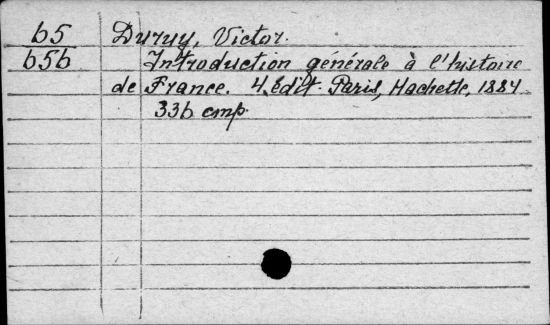 65 Duruy, Victor.
656 Introduction générale à l'histoire
de France. 4. Edit. Paris, Hachette, 1884
336 стр.